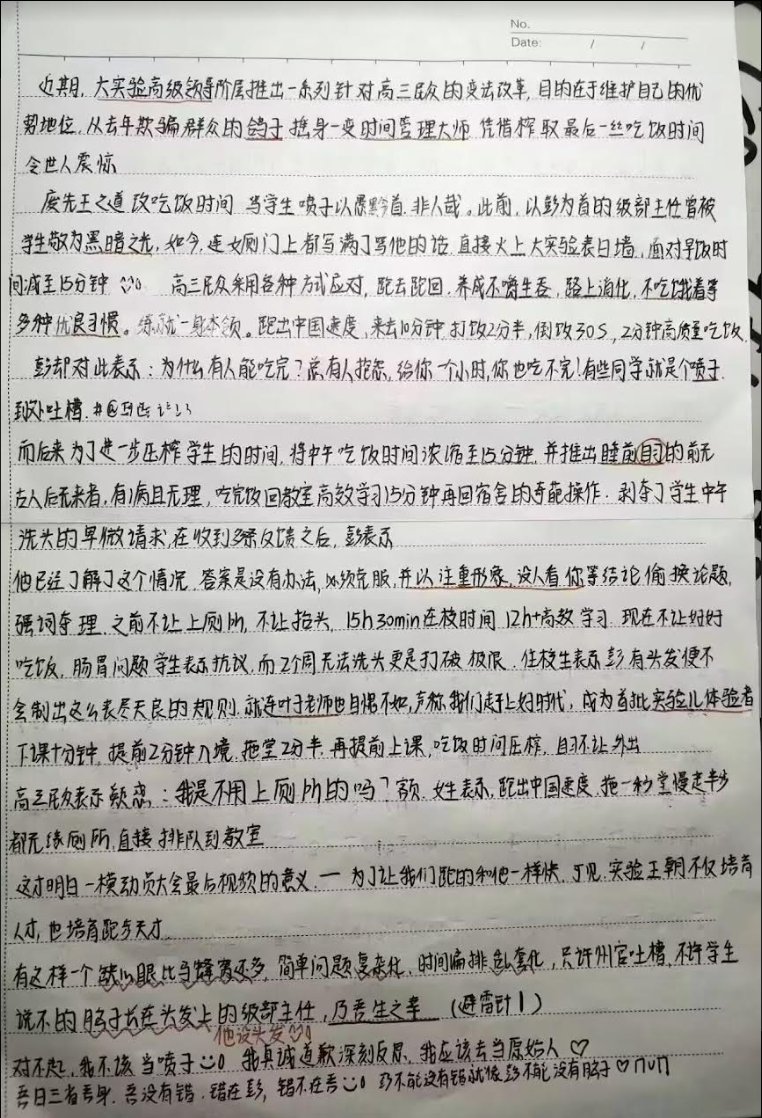 No.
Date: / /
近期，大实验高级领导阶层推出一系列针对高三民众的变法改革，目的在于维护自己的优
势地位，从去年欺骗群众的鸽子摇身一变时间管理大师 凭借榨取最后一丝吃饭时间
令世人震惊
废先王之道 改吃饭时间 当学生喷子以愚黔首，非人哉。此前，以彭为首的级部主任曾被
学生敬为黑暗之光，如今，连女厕门上都写满了骂他的话，直接火上大实验表白墙，面对早饭时
间减至15分钟 高三民众采用各种方式应对，跑去跑回，养成不嚼生吞，路上消化，不吃饿着等
多种优良习惯。练就一身本领。跑出中国速度，来去10分钟，打饭2分半，倒饭30S，2分钟高质量吃饭
彭却对此表示：为什么有人能吃完？总有人抱怨，给你一个小时，你也吃不完！有些同学就是个喷子
到处吐槽，#@
而后来为了进一步压榨学生的时间，将中午吃饭时间浓缩至15分钟，并推出睡前自习的前无
古人后无来者，有病且无理，吃完饭回教室高效学习15分钟再回宿舍的奇葩操作．剥夺了学生中午
洗头的卑微请求，在收到多条反馈之后，彭表示
他已经了解了这个情况，答案是没有办法，必须克服，并以注重形象，没人看你等结论偷换论题，
强词夺理，之前不让上厕所，不让抬头，15h30min在校时间 12h+高效学习，现在不让好好
吃饭，肠胃问题学生表示抗议，而2个周无法洗头更是打破极限．住校生表示彭有头发便不
会制出这么丧尽天良的规则，就连叶子老师也自愧不如，声称我们赶上好时代，成为首批实验儿体验者
下课十分钟，提前2分钟入境，拖堂2分半，再提前上课，吃饭时间压榨，自习不让外出
高三民众表示疑惑：我是不用上厕所的吗？额，女生表示，跑出中国速度，拖一秒堂慢走半步
都无缘厕所，直接排队到教室
这才明白一模动员大会最后视频的意义，— 为了让我们跑的和他一样快，可见，实验王朝不仅培育
人才，也培育跑步天才
有这样一个缺心眼比马蜂窝还多，简单问题复杂化，时间编排乱套化，只许州官吐槽，不许学生
说不的脑子长在头发上的级部主任，乃吾生之幸 (避雷针！)
他没头发
对不起，我不该当喷子 我真诚道歉深刻反思，我应该去当原始人♡
吾日三省吾身，吾没有错，错在彭，错不在吾 乃不能没有错就像彭不能没有脑子♡